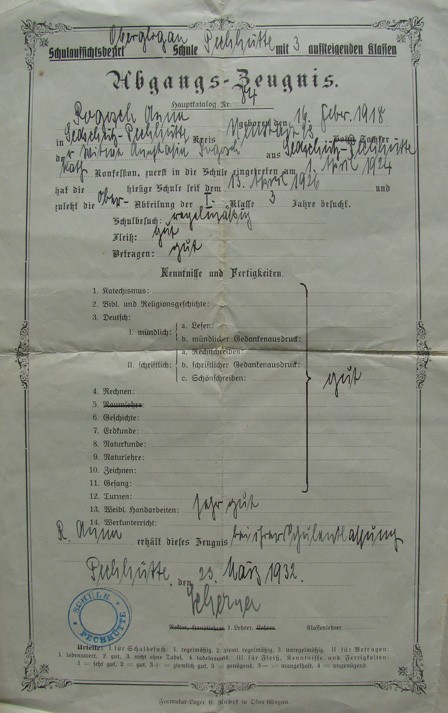 Schulaufsichtsbezirk Oberglogau Schule Pechhütte mit 3 aufsteigenden Klassen
Abgangs-Zeugnis.
Hauptkatalog Nr. 84
Rogosch Anna geboren den 16. Febr. 1918
in Pechhütte Kreis Neustadt OS. Sohn Tochter
der Witwe Rogosch aus Pechhütte
kath. Konfession, zuerst in die Schule eingetreten am 1. April 1924
hat die hiesige Schule seit dem 13. April 1926 und
zuletzt die Ober- Abteilung der I. Klasse 3 Jahre besucht.
Schulbesuch: regelmäßig
Fleiß: gut
Betragen: gut
Kenntnisse und Fertigkeiten.
1. Katechismus:
2. Bibl. und Religionsgeschichte:
3. Deutsch:
I. mündlich: a. Lesen:
b. mündlicher Gedankenausdruck:
II. schriftlich: a. Rechtschreiben:
b. schriftlicher Gedankenausdruck:
c. Schönschreiben:
gut
4. Rechnen:
5. Raumlehre:
6. Geschichte:
7. Erdkunde:
8. Naturkunde:
9. Naturlehre:
10. Zeichnen:
11. Gesang:
12. Turnen:
13. Weibl. Handarbeiten: sehr gut
14. Werkunterricht:
R. Anna erhält dieses Zeugnis bei ihrer Schulentlassung
Pechhütte, den 23. März 1932.
Rektor, Hauptlehrer, 1. Lehrer, Lehrer. Klassenlehrer
SCHULE PECHHÜTTE
Urteile: I für Schulbesuch: 1. regelmäßig, 2. ziemi. regelmäßig, 3. unregelmäßig. II für Betragen:
1. lobenswert, 2. gut, 3. nicht ohne Tadel, 4. tadelhaft. III für Fleiß, Kenntnisse und Fertigkeiten:
1 = sehr gut, 2 = gut, 3 = genügend, 4 = mangelhaft, = ungenügend.
Formular-Lager in Ober-Glogau.